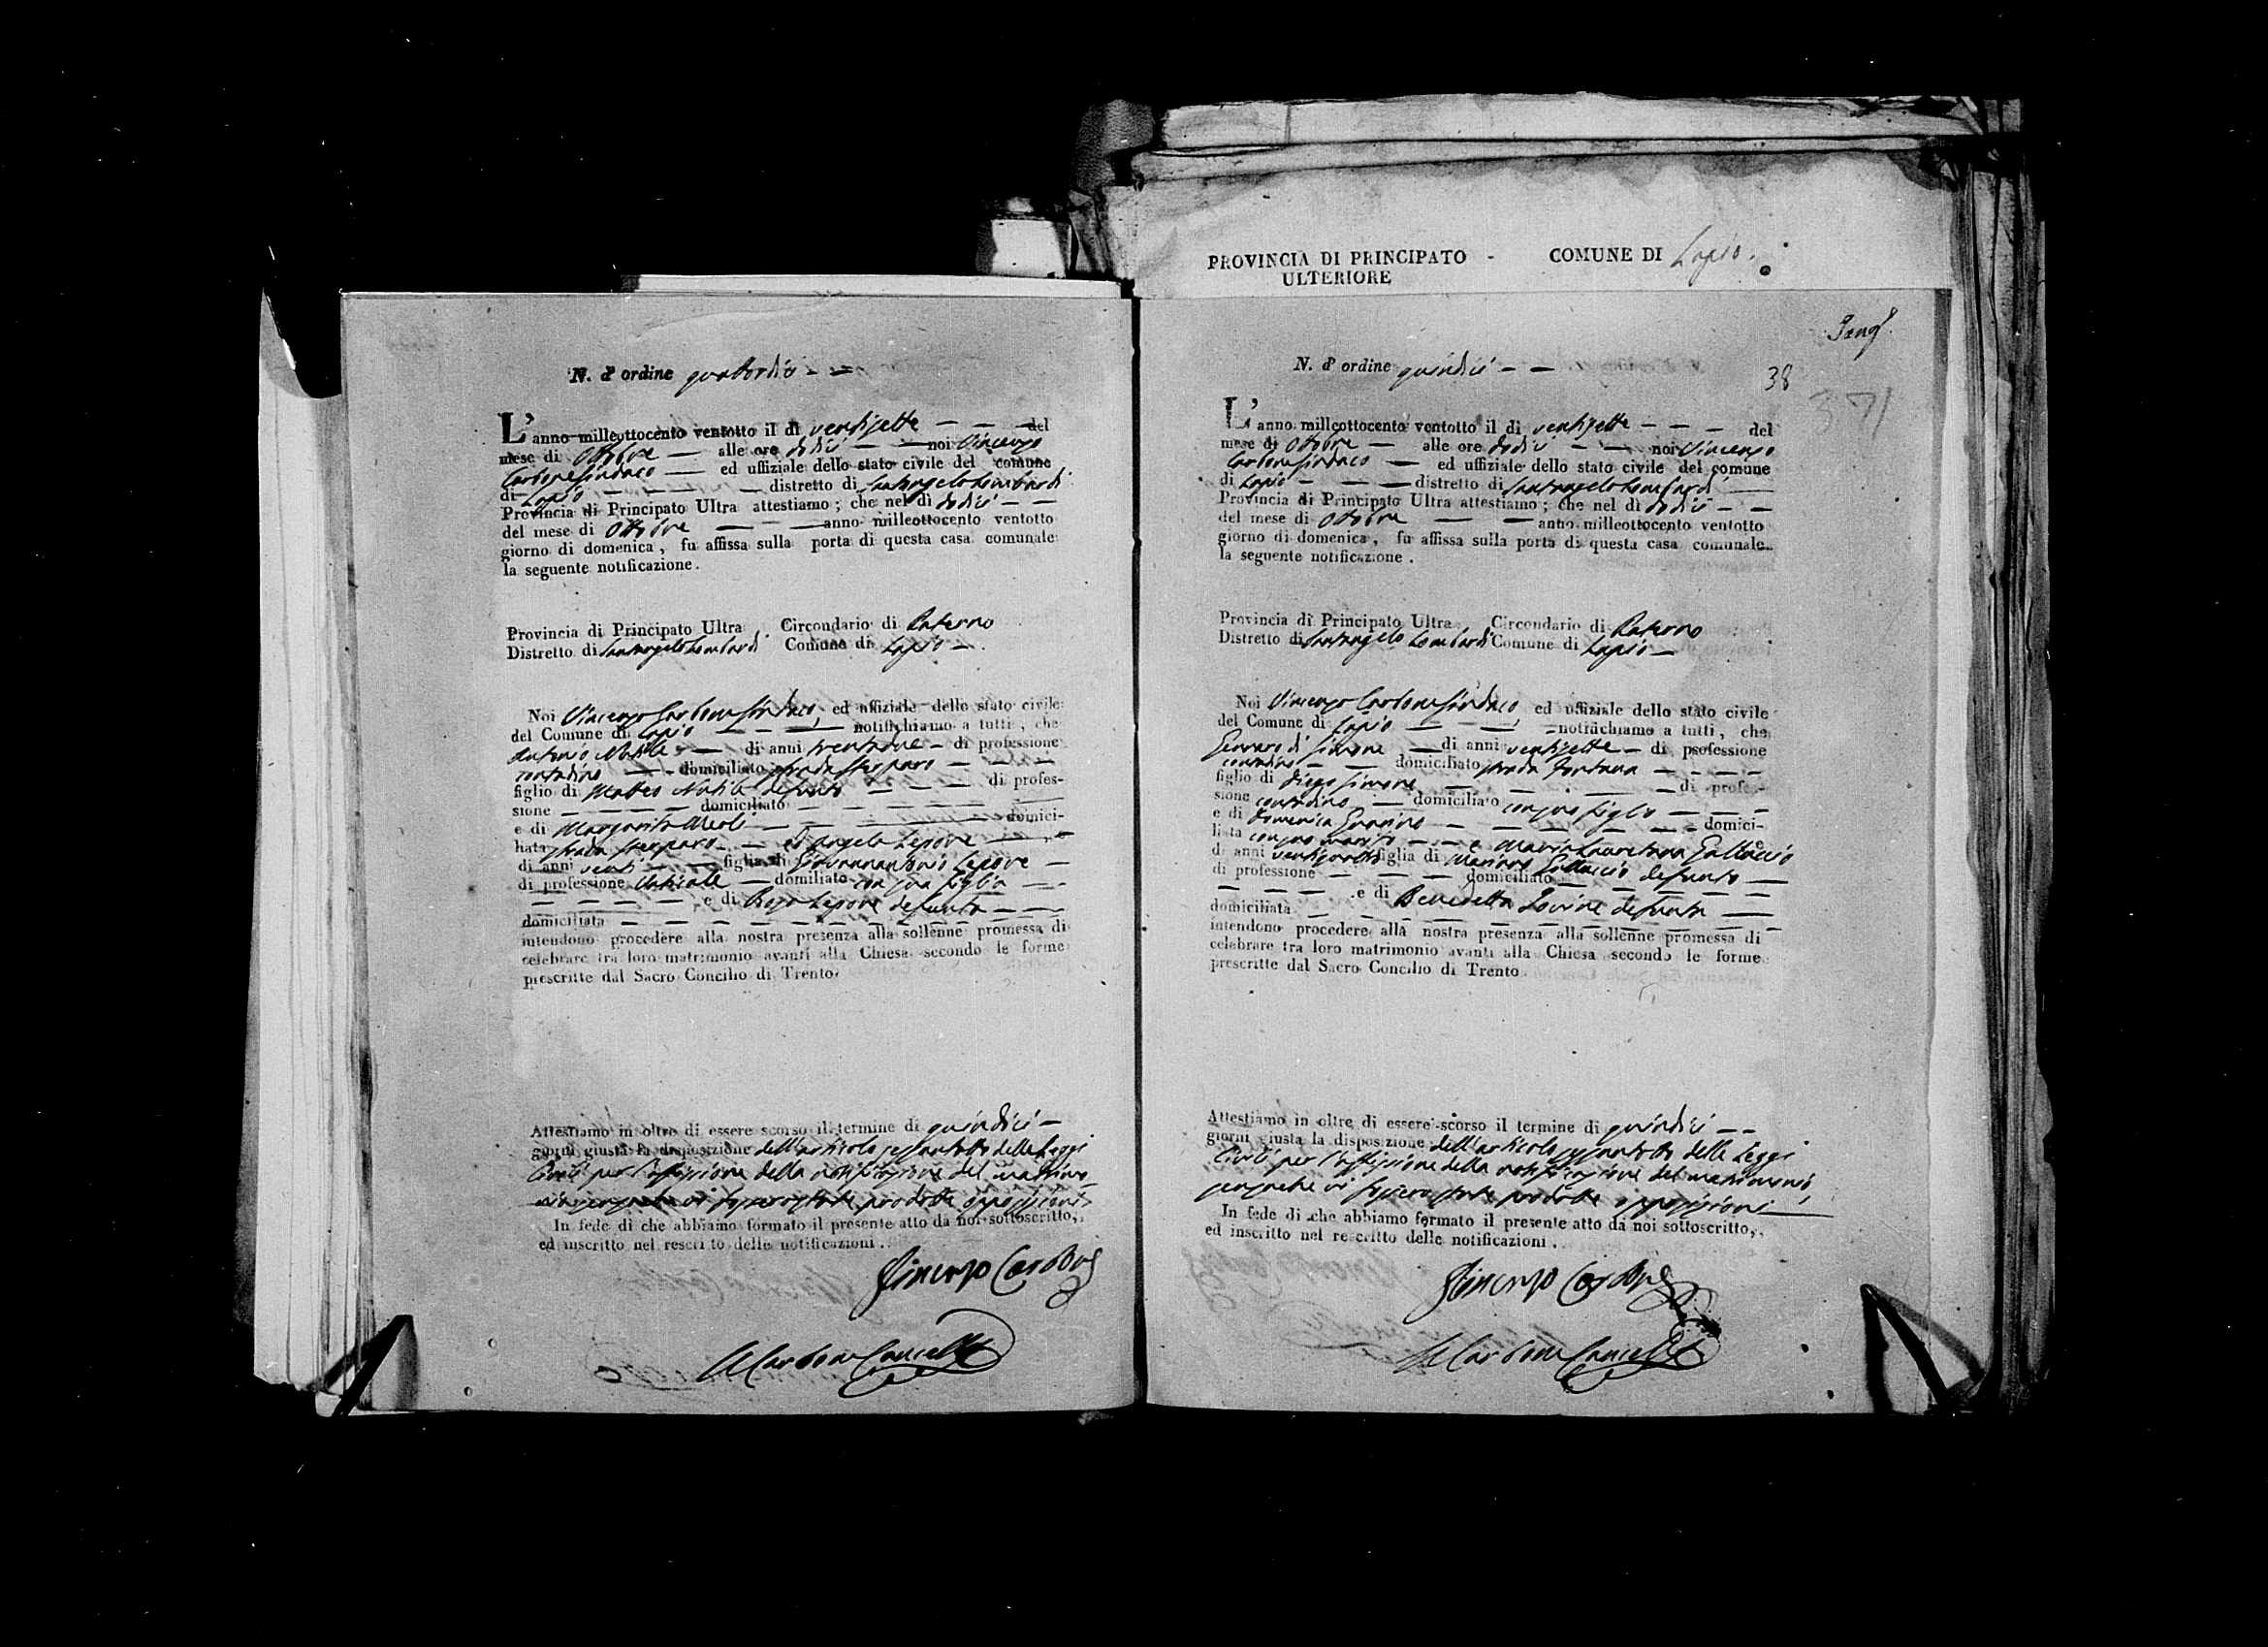 N. d' ordine quattordici
L' anno milleottocento ventotto il di ventisette del
mese di Ottobre alle ore dodici noi Vincenzo
Carbone Sindaco ed uffiziale dello stato civile del comune
di Lapio distretto di Santangelo Lombardi
Provincia di Principato Ultra attestiamo ; che nel dì dodici
del mese di Ottobre anno milleottocento ventotto
giorno di domenica , fu affissa sulla porta di questa casa comunale
la seguente notificazione .
Provincia di Principato Ultra Circondario di Paterno
Distretto di Santangelo Lombardi Comune di Lapio
Noi Vincenzo Carbone Sindaco, ed uffiziale dello stato civile
del Comune di Lapio notifichiamo a tutti , che
Antonio Nobile di anni trentadue di professione
contadino domiciliato strada
figlio di Matteo Nobile defunto di profes-
sione domiciliato
e di Margarita Meoli domici-
liata strada ed Angela Lepore
di anni venti figlia di Giovannantonio Lepore
di professione domiliato con sua figlia
e di Rosa Lepore defunta
domiciliata
intendono procedere alla nostra presenza alla sollenne promessa di
celebrare tra loro matrimonio avanti alla Chiesa secondo le forme
prescritte dal Sacro Concilio di Trento.
Attestiamo in oltre di essere scorso il termine di quindici
giorni giusta la disposizione dell'articolo sessantotto delle Leggi
Civili per l'affissione della notificazione del matrimo-
nio senzache vi fussero state prodotte opposizioni
In fede di che abbiamo formato il presente atto da noi sottoscritto,
ed inscritto nel rescritto delle notificazioni .
Vincenzo Carbone
Carbone Cancell
PROVINCIA DI PRINCIPATO - COMUNE DI Lapio.
ULTERIORE
38
371
N. d' ordine quindici
L' anno milleottocento ventotto il di ventisette del
mese di Ottobre alle ore dodici noi Vincenzo
Carbone Sindaco ed uffiziale dello stato civile del comune
di Lapio distretto di Santangelo Lombardi
Provincia di Principato Ultra attestiamo ; che nel dì dodici
del mese di Ottobre anno milleottocento ventotto
giorno di domenica , fu affissa sulla porta di questa casa comunale
la seguente notificazione .
Provincia di Principato Ultra Circondario di Paterno
Distretto di Santangelo Lombardi Comune di Lapio
Noi Vincenzo Carbone Sindaco, ed uffiziale dello stato civile
del Comune di Lapio notifichiamo a tutti , che
Gennaro di Simone di anni ventisette di professione
contadino domiciliato strada Fontana
figlio di Diego Simone di profes-
sione contadino domiciliato con suo figlio
e di Domenica Guarino domici-
liata con suo marito e Maria Lauretana Galluccio
di anni figlia di Mariano Galluccio defunto
di professione domiciliato
e di Benedetta Iovine defunta
domiciliata
intendono procedere alla nostra presenza alla sollenne promessa di
celebrare tra loro matrimonio avanti alla Chiesa secondo le forme
prescritte dal Sacro Concilio di Trento
Attestiamo in oltre di essere scorso il termine di quindici
giorni giusta la disposizione dell'articolo sessantotto delle Leggi
Civili per l'affissione della notificazione del matrimonio,
senzache vi fussero state prodotte opposizioni
In fede di che abbiamo formato il presente atto da noi sottoscritto,
ed inscritto nel rescritto delle notificazioni .
Vincenzo Carbone
Carbone Cancell